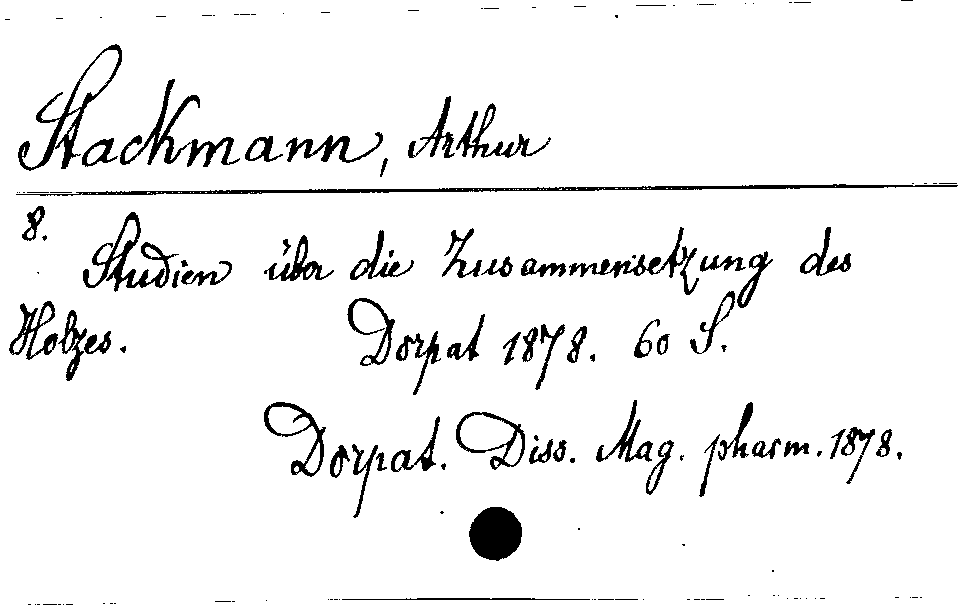 Stackmann, Arthur
8.
Studien über die Zusammensetzung des
Holzes. Dorpat 1878. 60 S.
Dorpat. Diss. Mag. pharm. 1878.